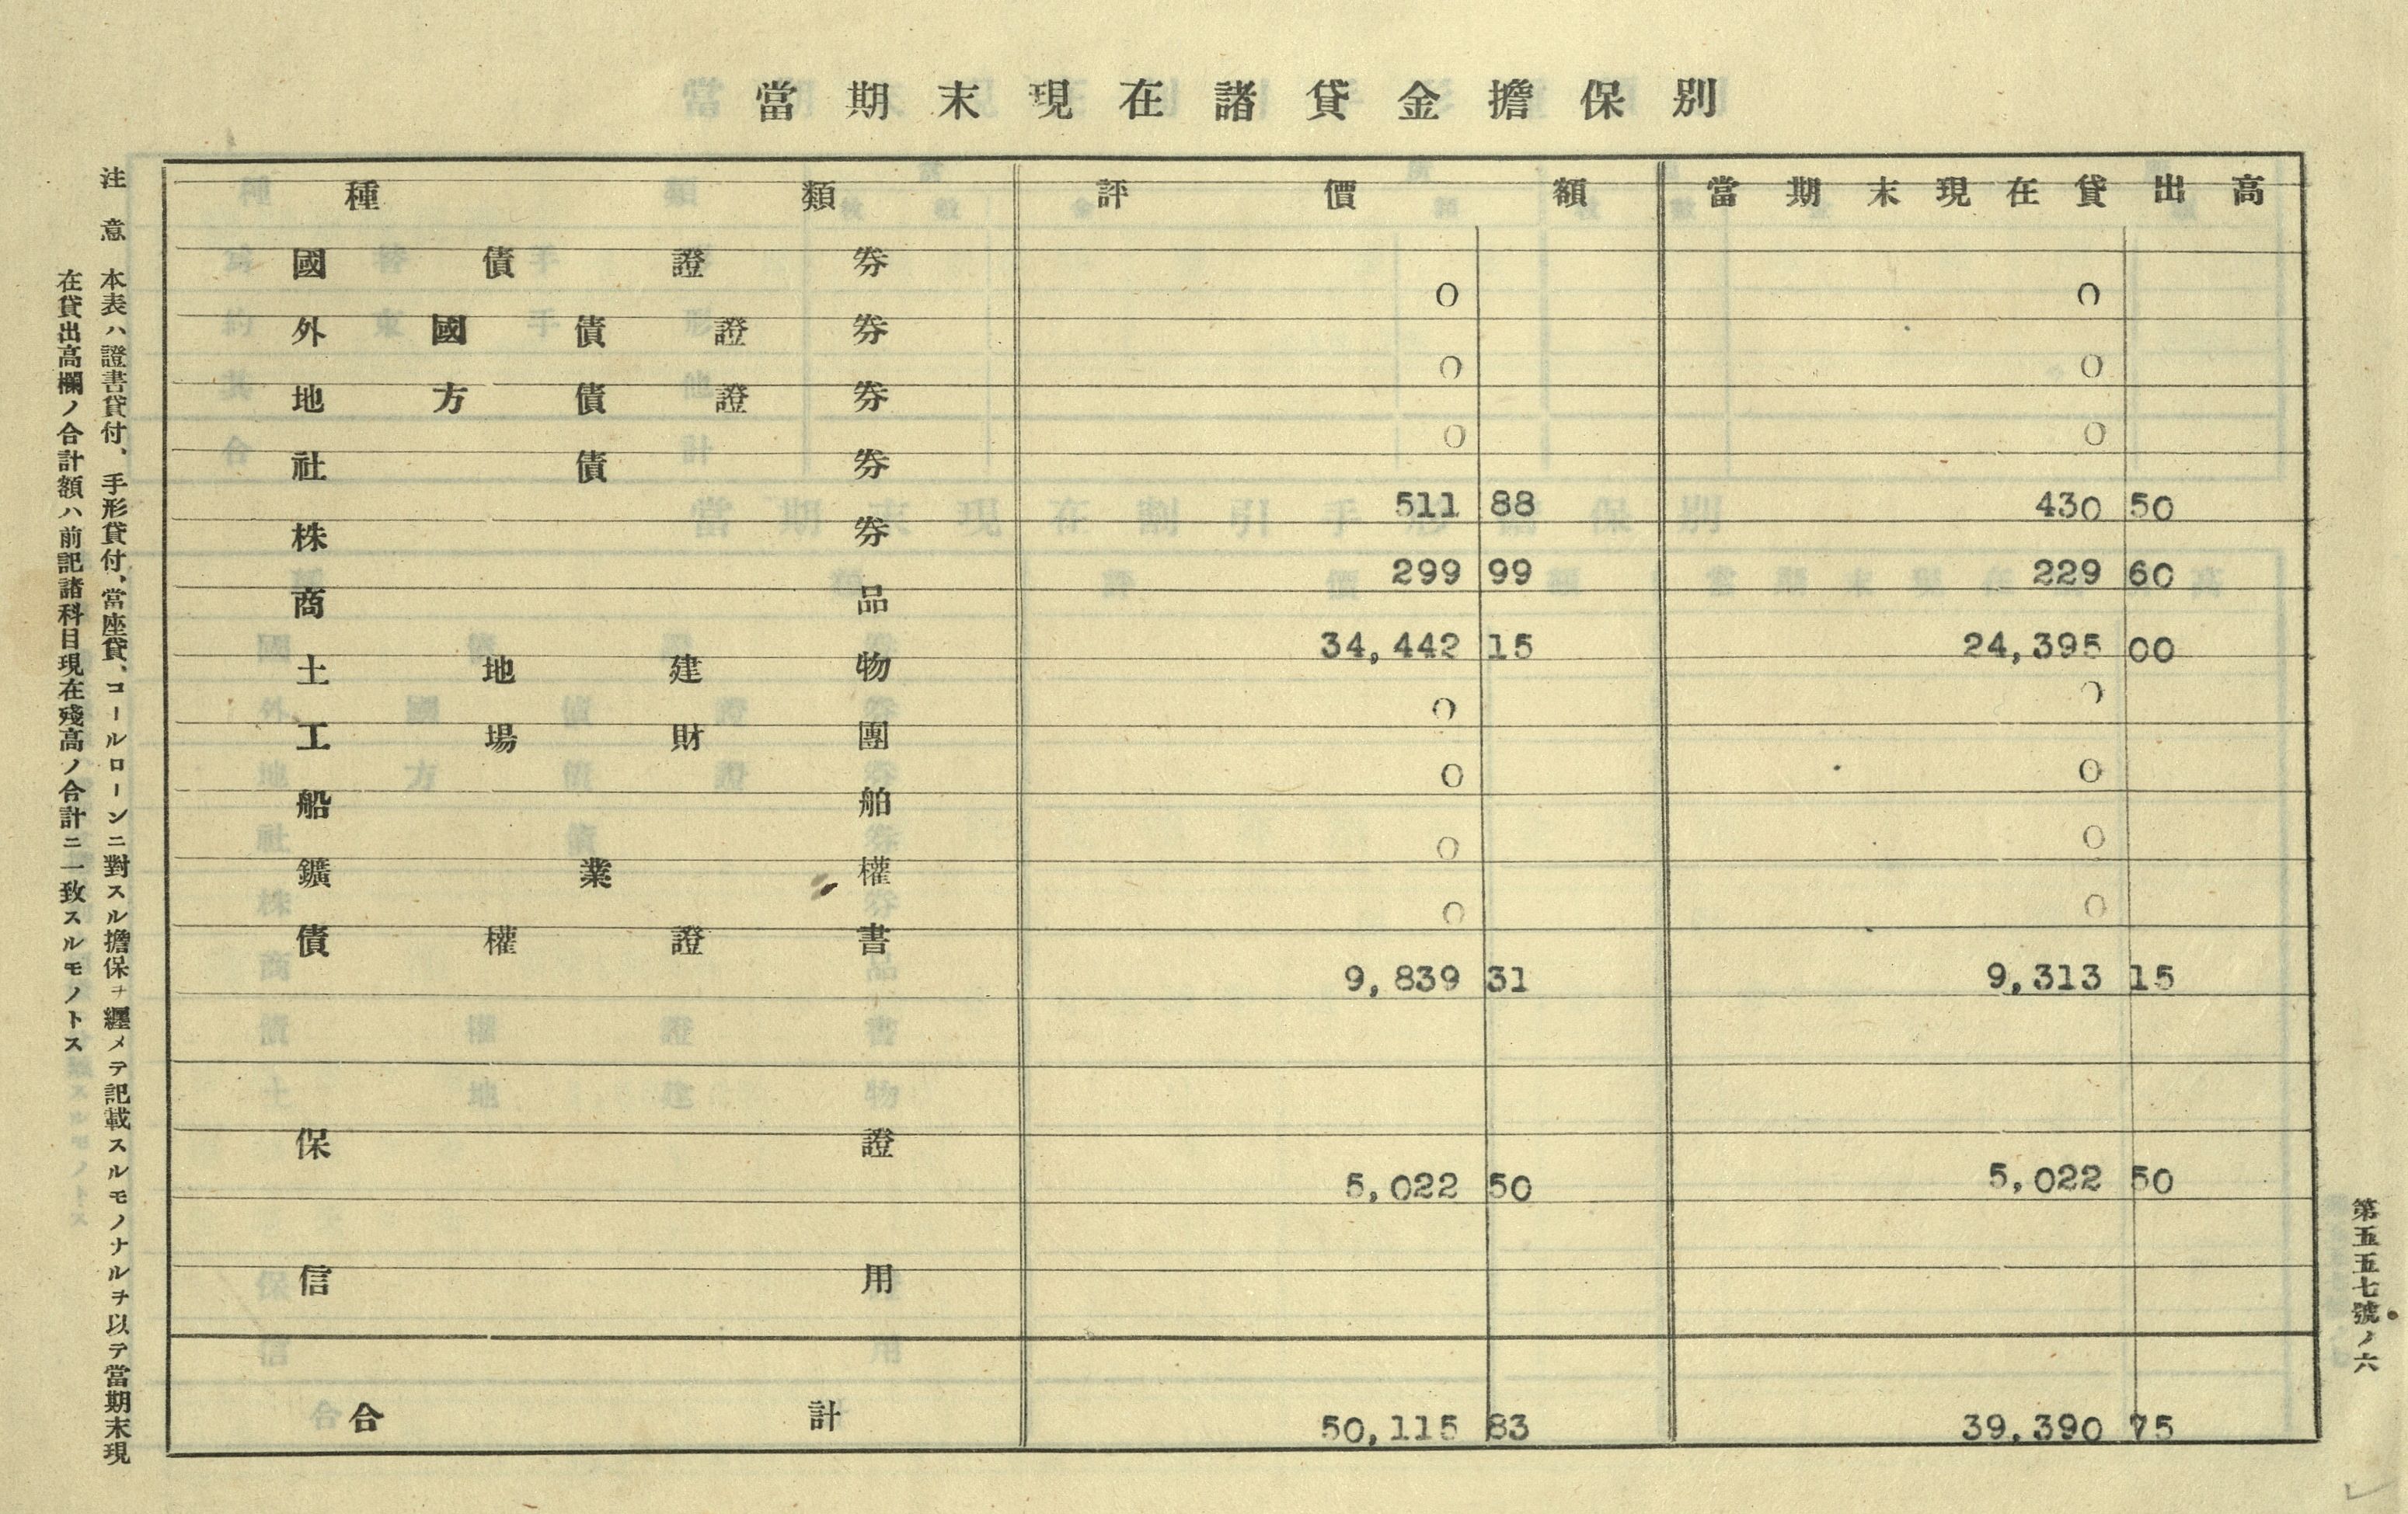 當期末現在諸貸金擔保別
種類 評價額 當期末現在貸出高
國債證券 0 0
外國債證券 0 0
地方債證券 0 0
社債券 511 88 430 50
株券 299 99 229 60
商品 34,442 15 24,395 00
土地建物 0 0
工場財團 0 0
船舶 0 0
鑛業權 0 0
債權證書 9,839 31 9,313 15
保證 5,022 50 5,022 50
信用
合計 50,115 83 39,390 75
注意 本表ハ證書貸付、手形貸付、當座貸、コールローンニ對スル擔保ヲ纒メテ記載スルモノナルヲ以テ當期末現
在貸出高欄ノ合計額ハ前記諸科目現在殘高ノ合計ニ一致スルモノトス
第五五七號ノ六